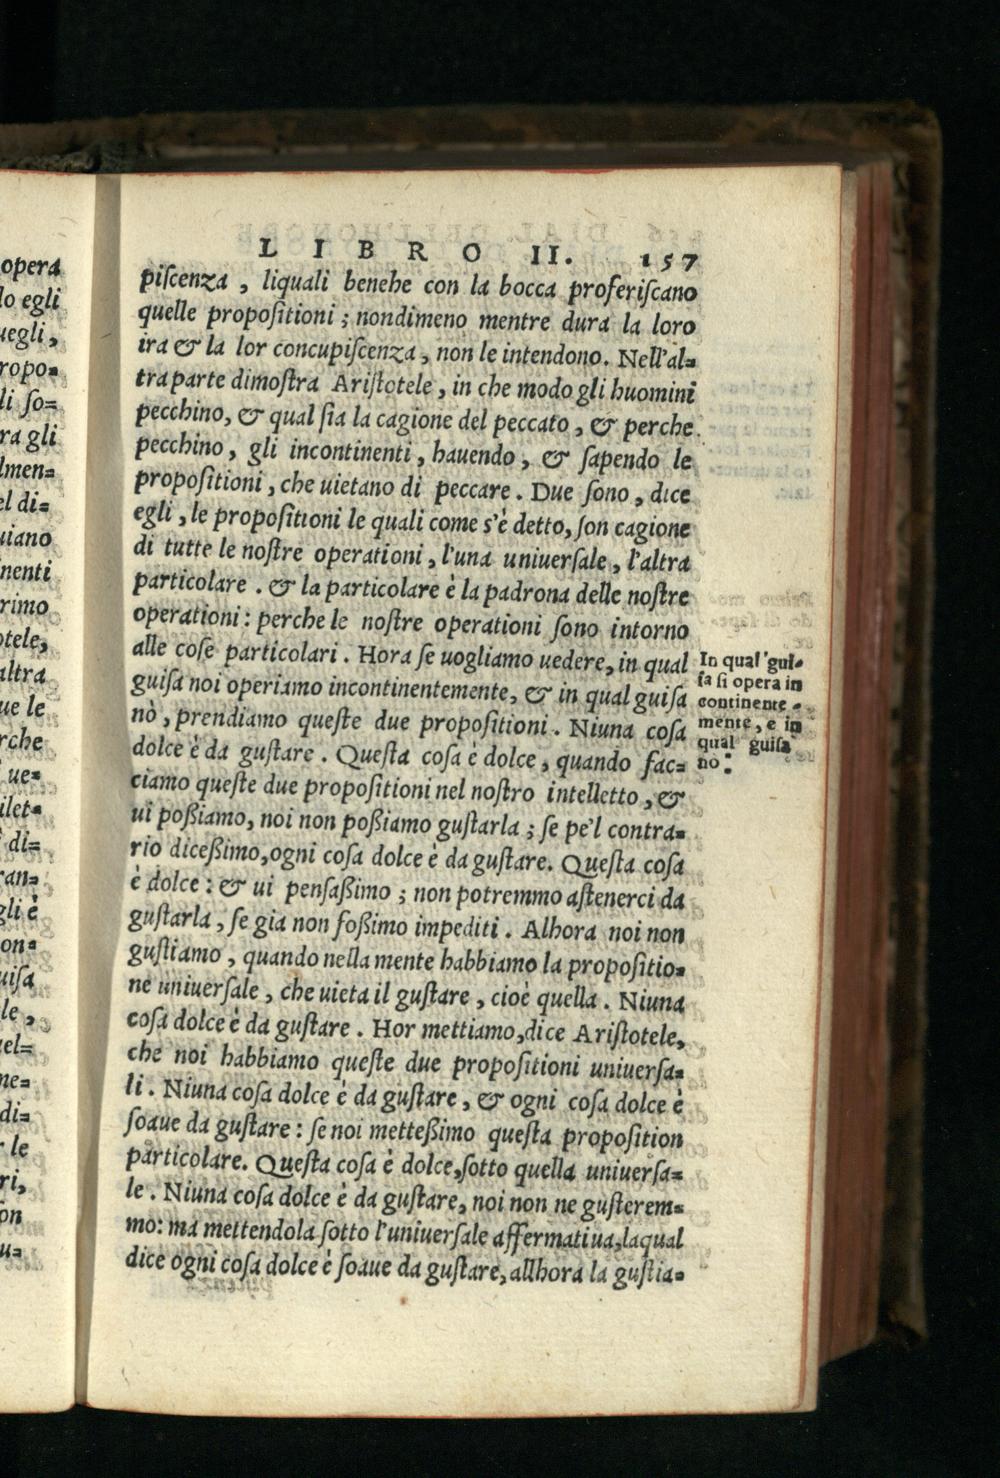 LIBRO II. 157
piſcenza, liquali benehe con la bocca proferiſcano
quelle propoſitioni; nondimeno mentre dura la loro
ira & la lor concupiſcenza, non le intendono. Nell'al=
tra parte dimoſtra Ariſtotele, in che modo gli huomini
pecchino, & qual ſia la cagione del peccato, & perche
pecchino, gli incontinenti, hauendo, & ſapendo le
propoſitioni, che uietano di peccare. Due ſono, dice
egli, le propoſitioni le quali come s'è detto, ſon cagione
di tutte le noſtre operationi, l'una uniuerſale, l'altra
particolare. & la particolare è la padrona delle noſtre
operationi: perche le noſtre operationi ſono intorno
alle coſe particolari. Hora ſe uogliamo uedere, in qual
guiſa noi operiamo incontinentemente, & in qual guiſa
nò, prendiamo queſte due propoſitioni. Niuna coſa
dolce è da guſtare. Queſta coſa è dolce, quando fac=
ciamo queſte due propoſitioni nel noſtro intelletto, &
ui poßiamo, noi non poßiamo guſtarla; ſe pe'l contra=
rio diceßimo, ogni coſa dolce è da guſtare. Queſta coſa
è dolce: & ui penſaßimo; non potremmo aſtenerci da
guſtarla, ſe gia non foßimo impediti. Alhora noi non
guſtiamo, quando nella mente habbiamo la propoſitio=
ne uniuerſale, che uieta il guſtare, cioè quella. Niuna
coſa dolce è da guſtare. Hor mettiamo, dice Ariſtotele,
che noi habbiamo queſte due propoſitioni uniuerſa=
li. Niuna coſa dolce è da guſtare, & ogni coſa dolce è
ſoaue da guſtare: ſe noi metteßimo queſta propoſition
particolare. Queſta coſa è dolce, ſotto quella uniuerſa=
le. Niuna coſa dolce è da guſtare, noi non ne guſterem=
mo: ma mettendola ſotto l'uniuerſale affermatiua, laqual
dice ogni coſa dolce è ſoaue da guſtare, allhora la guſtia=
In qual gui=
ſa ſi opera in
continente =
mente, e in
qual guiſa
no:
opera
lo egli
uegli,
ropo=
li ſo=
ra gli
lmen=
el di=
uiano
nenti
rimo
otele,
altra
ue le
rche
ue=
ilet=
di=
ran=
gli è
on=
uiſa
le,
uel=
ne=
di=
le
ri,
on
u=